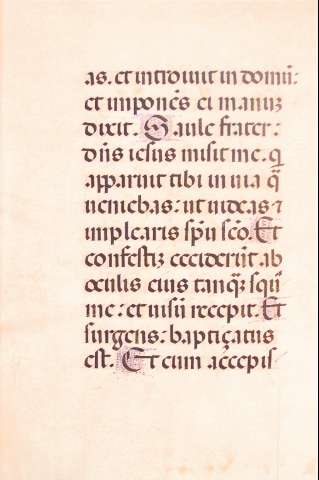 as. et introiuit in domũ:
et imponẽs ei manuz
dixit. Saule frater:
dñs iesus misit me. q
apparuit tibi in uia q̃
ueniebas: ut uideas ⁊
implearis spũ scõ. Et
confestiz ceciderũt ab
oculis eius tanq̃z squ
me: et uisũ recepit. Et
surgens: baptiçatus
est. Et cum accepis